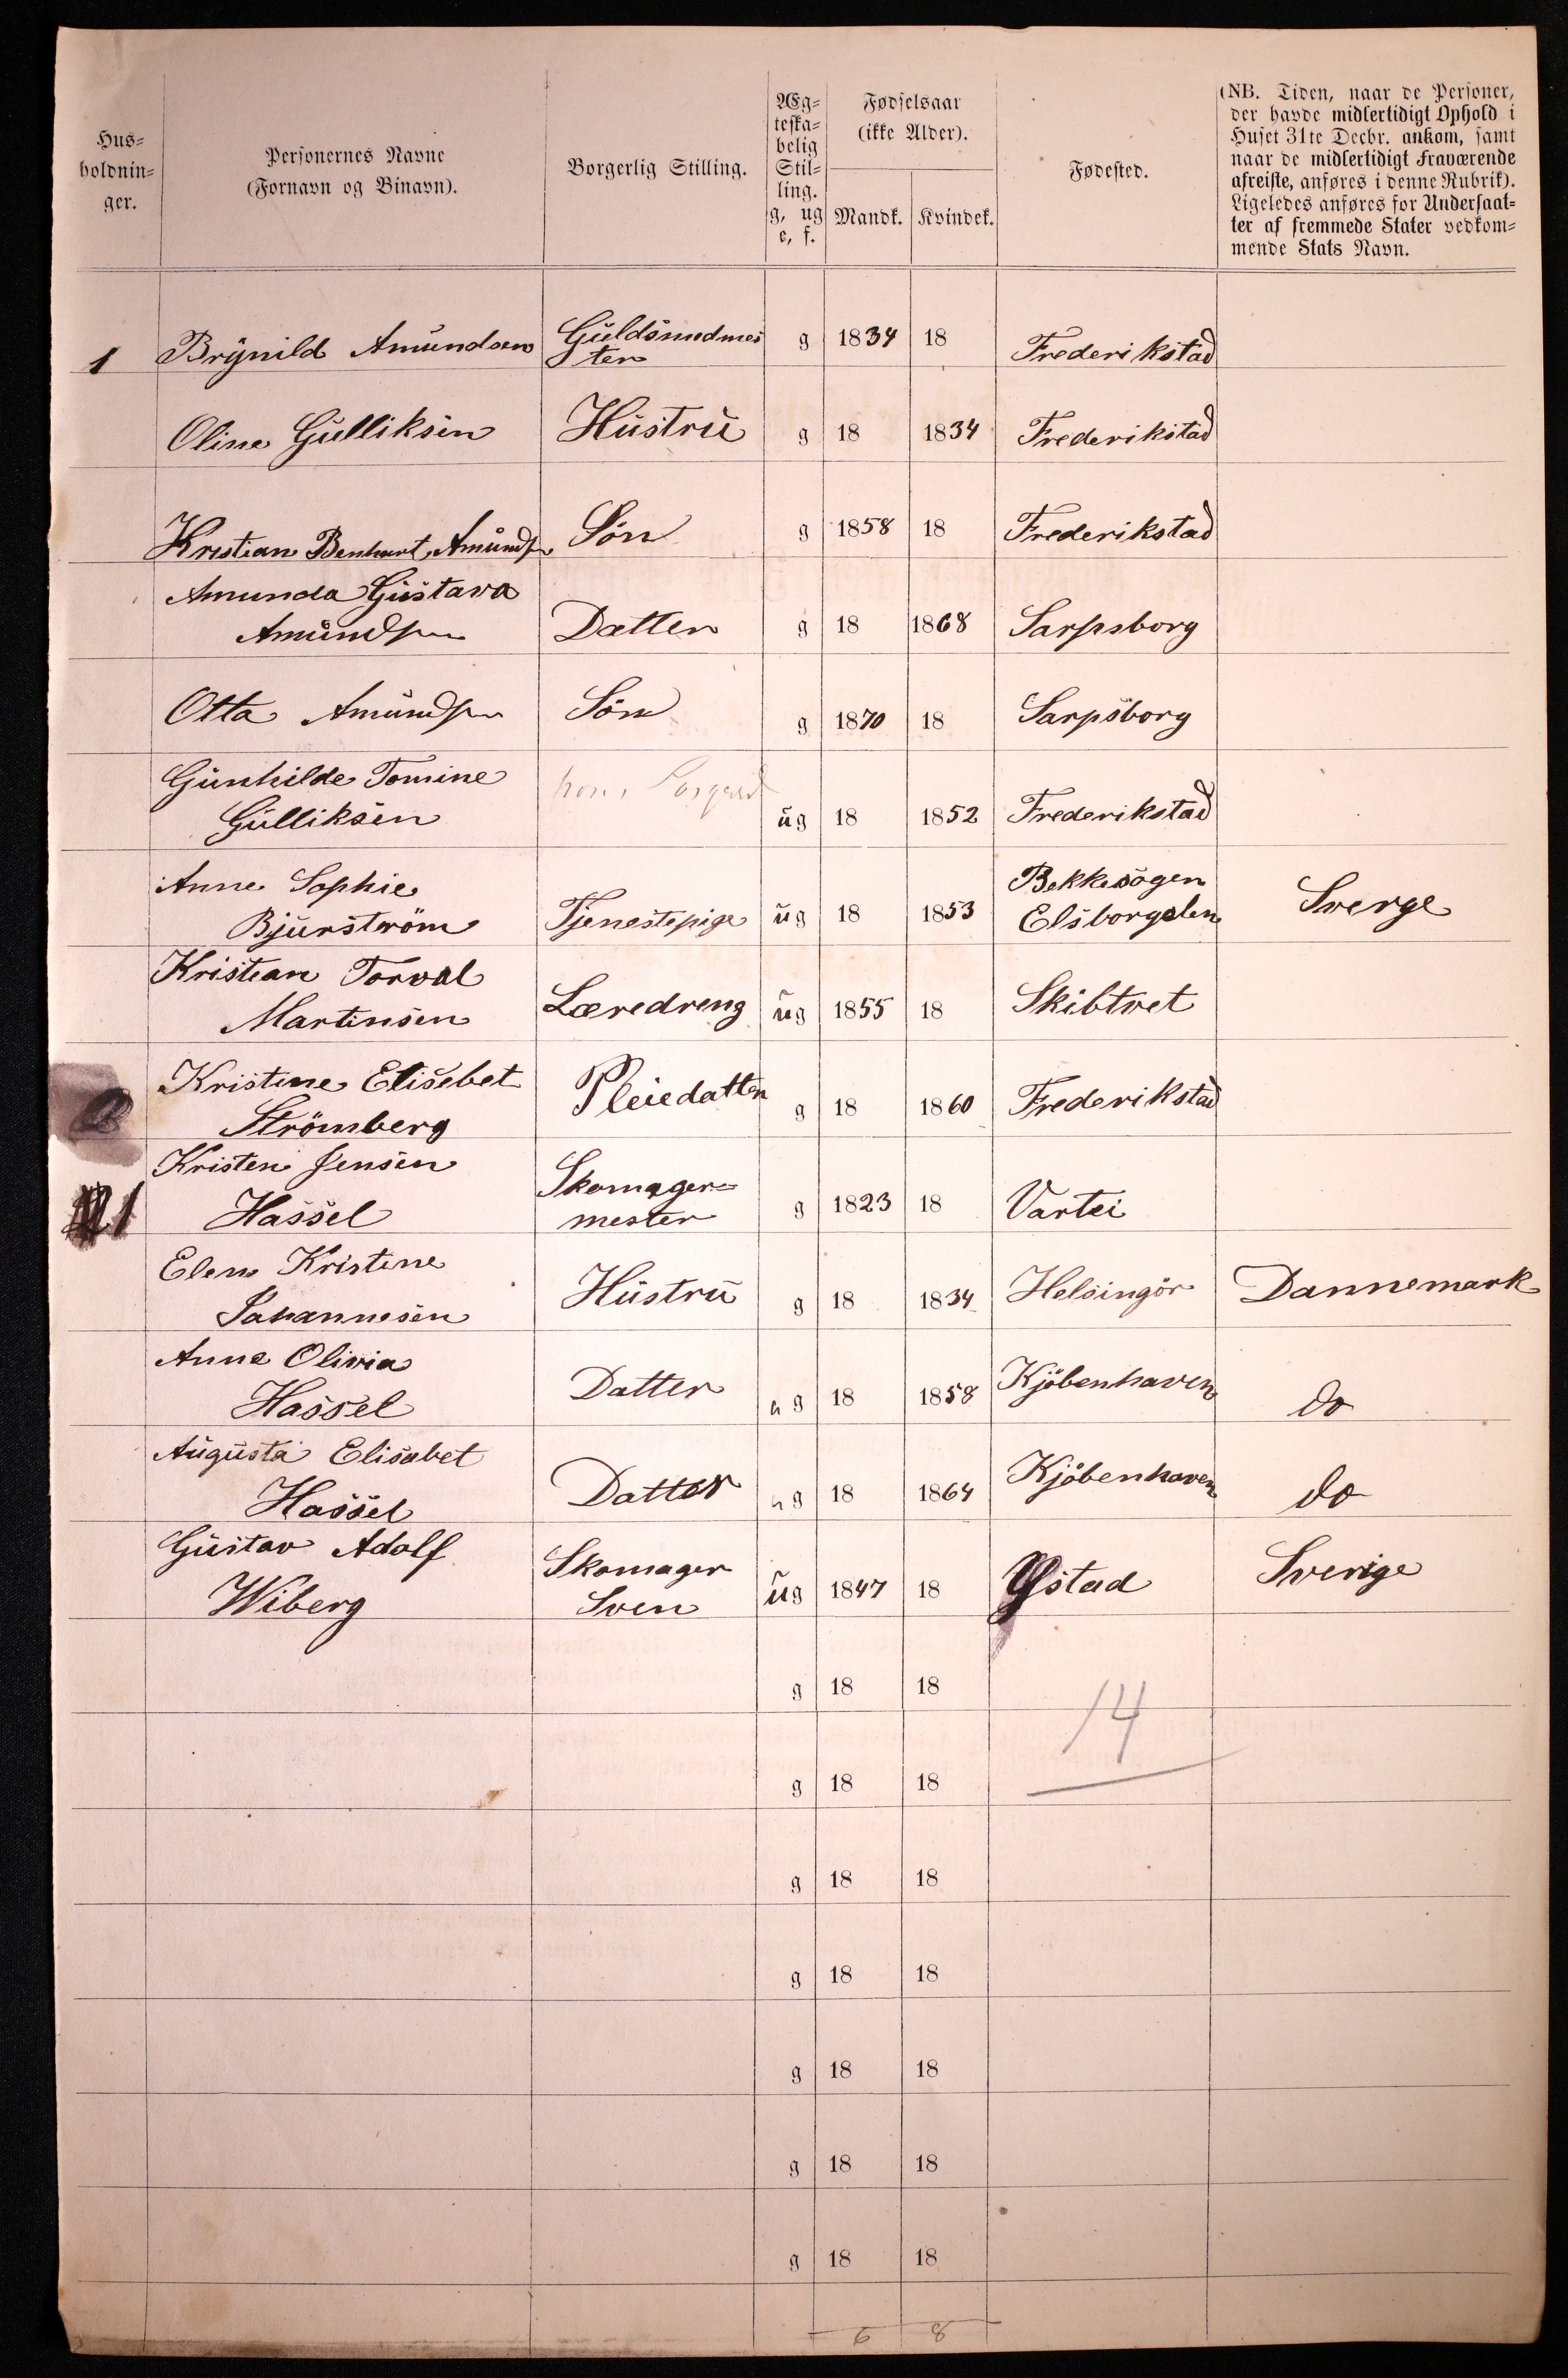 Hus=
holdnin=
ger.
Personernes Navne
(Fornavn og Binavn).
Borgerlig Stilling.
Æg=
teska=
belig
Stil=
ling.
g, ug
e, f.
Fødselsaar
(ikke Alder).
Mandk. Kvindek.
Fødested.
(NB. Tiden, naar de Personer,
der havde midlertidigt Ophold i
Huset 31te Decbr. ankom, samt
naar de midlertidigt Fraværende
afreiste, anføres i denne Rubrik).
Ligeledes anføres for Undersaat=
ter af fremmede Stater vedkom=
mende Stats Navn.
1 Brynild Amundsen Guldsmedmes
ter g 1834 18 Frederikstad
Oline Gulliksen Hustru g 18 1834 Frederikstad
Kristian Benhart Amundsen Sön g 1858 18 Frederikstad
Amunda Gustava
Amundsen Datter g 18 1868 Sarpsborg
Otta Amundsen Sön g 1870 18 Sarpsborg
Gunhilde Tomine
Gulliksen ug 18 1852 Frederikstad
Anne Sophie
Bjurström Tjenestepige ug 18 1853 Bekkesogen
Elsborgslen Sverge
Kristian Torval
Martinsen Læredreng ug 1855 18 Skibtvet
Kristine Elisebet
Strömberg Pleiedatter g 18 1860 Frederikstad
1 Kristen Jensen
Hassel Skomager=
mester g 1823 18 Vartei
Elen Kristine
Johannesen Hustru g 18 1834 Helsingör Dannemark
Anne Olivia
Hassel Datter ug 18 1858 Kjöbenhaven do
Augusta Elisabet
Hassel Datter ug 18 1864 Kjöbenhaven do
Gustav Adolf
Wiberg Skomager
Sven ug 1847 18 Ystad Sverige
g 18 18
14
g 18 18
g 18 18
g 18 18
g 18 18
g 18 18
g 18 18
6 8